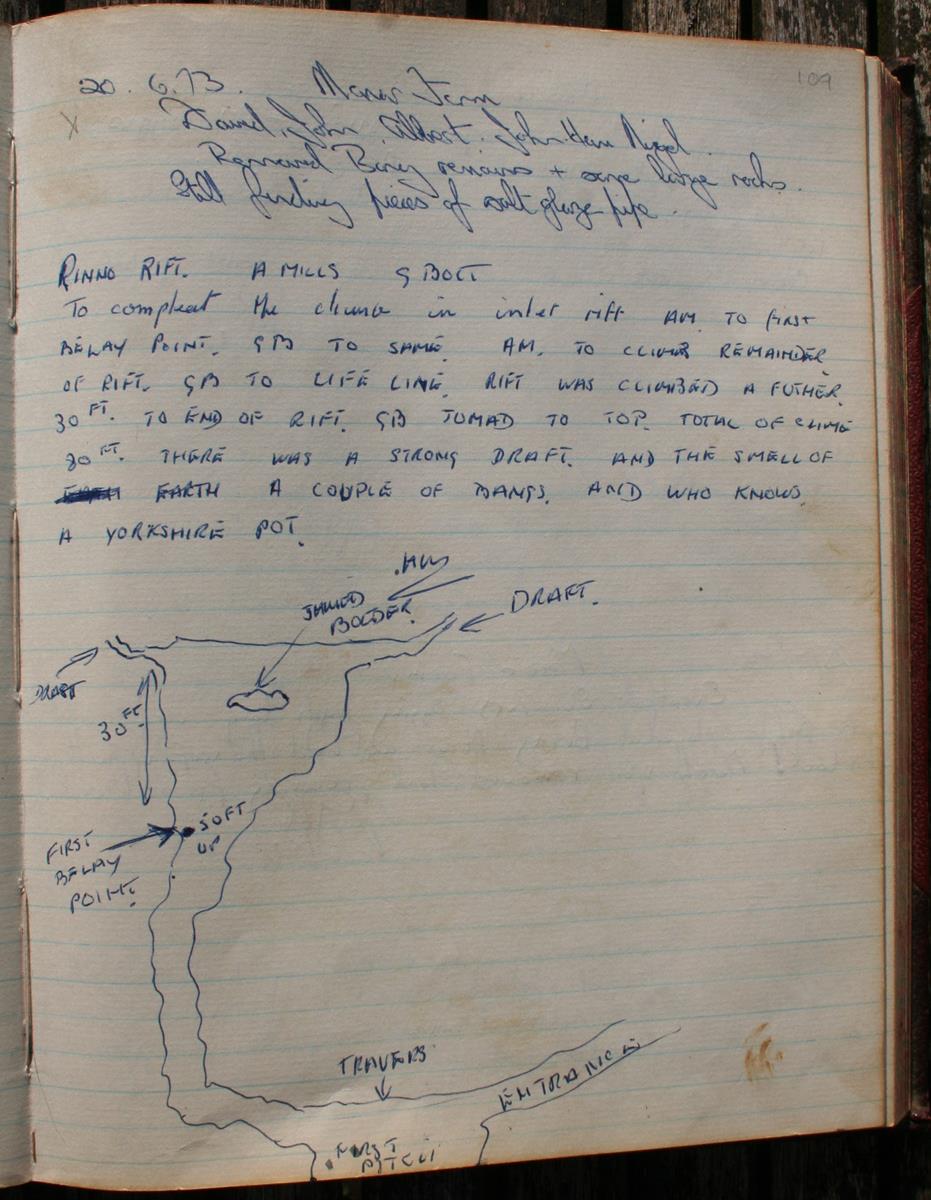 109
20. 6. 73. Manor Farm
X
David, John, Albert, John Ham Nigel.
Removed Bing remains + some large rocks.
Still finding pieces of salt glaze pipe.
RINNO RIFT. A MILLS G BOLT
To compleat the climb in inlet rift AM. TO FIRST
BELAY POINT. GB TO SAME. AM. TO CLIMB REMAINDER
OF RIFT. GB TO LIFE LINE. RIFT WAS CLIMBED A FUTHER.
30 FT. TO END OF RIFT. GB JUMAD TO TOP. TOTAL OF CLIME
80 FT. THERE WAS A STRONG DRAFT. AND THE SMELL OF
EARTH A COUPLE OF BANGS. AND WHO KNOWS
A YORKSHIRE POT.
JAMED
BOLDER.
DRAFT.
DRAFT
30 FT.
FIRST
BELAY
POINT.
50FT
UP
TRAVERS
ENTRANCE
FIRST
PITCH